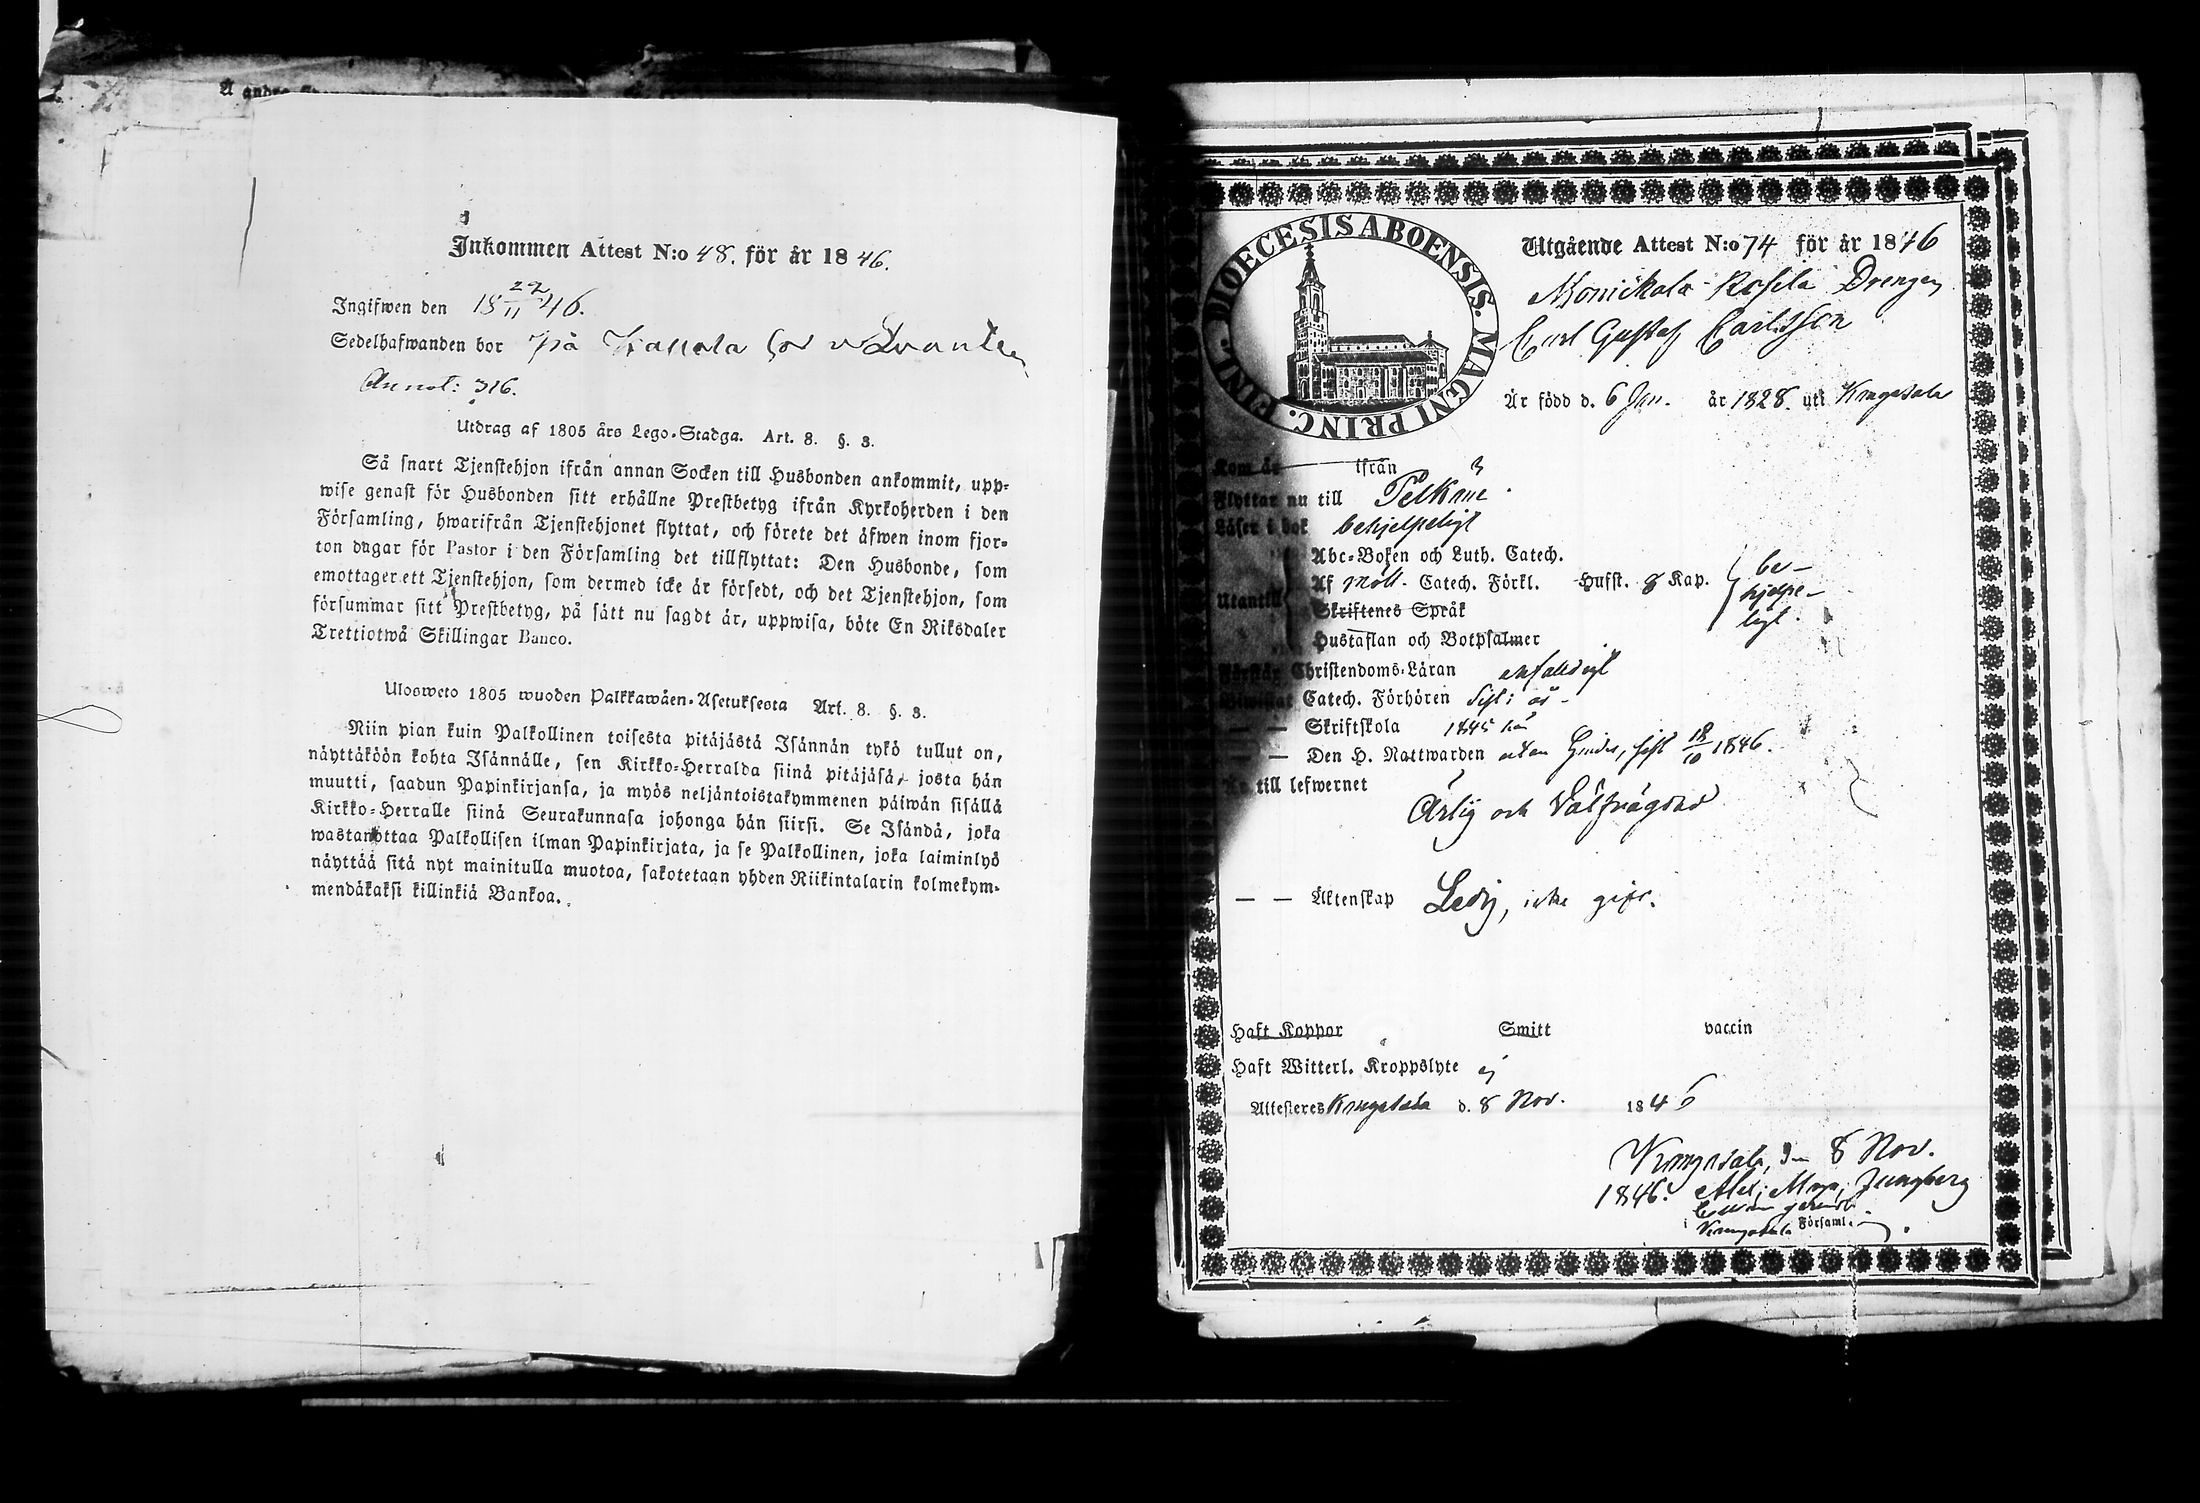 Inkommen Attest N:o 48. för år 1846.
Ingifwen den 18 22/11 46.
Sedelhafwanden bor på
Annot: 316.
Utdrag af 1805 års Lego-Stadga. Art. 8. §. 3.
Så snart Tjenstehjon ifrån annan Socken till Husbonden ankommit, upp-
wise genast för Husbonden sitt erhållne Prestbetyg ifrån Kyrkoherden i den
Församling, hwarifrån Tjenstehjonet flyttat, och förete det äfwen inom fjor-
ton dagar för Pastor i den Församling det tillflyttat: Den Husbonde, som
emottager ett Tjenstehjon, som dermed icke är försedt, och det Tjenstehjon, som
försummar sitt Prestbetyg, på sätt nu sagdt är, uppwisa, böte En Riksdaler
Trettiotwå Skillingar Banco.
Ulosweto 1805 wuoden Palkkawäen-Asetuksesta Art. 8. §. 3.
Niin pian kuin Palkollinen toisesta pitäjästä Isännän tykö tullut on,
näyttäköön kohta Isännälle, sen Kirkko-Herralda siinä pitäjäsä, josta hän
muutti, saadun Papinkirjansa, ja myös neljäntoistakymmenen päiwän sisällä
Kirkko-Herralle siinä Seurakunnasa johonga hän siirsi. Se Isändä, joka
wastanottaa Palkollisen ilman Papinkirjata, ja se Palkollinen, joka laiminlyö
näyttää sitä nyt mainitulla muotoa, sakotetaan yhden Riikintalarin kolmekym-
mendäkaksi killinkiä Bankoa.
DIOECESIS ABOENSIS. MAGNI PRINC. FINL.
Utgående Attest N:o 74 för år 1846
Rosila Drengen
Carl Gustaf Carlsson
Är född d. 6 Jan. år 1828. uti Kangasala
Kom år ifrån
Flyttar nu till Pelkäne.
Läser i bok behjelpeligt
Abc-Boken och Luth. Catech.
Utantill Af Catech. Förkl. Hufst. 8 Kap. be-
hjelpe-
ligt.
Skriftenes Språk
Hustaflan och Botpsalmer
Förstår Christendoms-Läran enfaldigt
Biwistat Catech. Förhören sist i år -
— — Skriftskola 1845 här
— — Den H. Nattwarden utan hinder, sist 18/10 1846.
Är till lefwernet
Ärlig och Välfrägdad
— — Äktenskap Ledig, icke gift.
Haft Koppor Smitt vaccin
Haft Witterl. Kroppslyte ej
Attesteres Kangasala d. 8 Nov. 1846
Kangasala, den 8 Nov.
1846. Ljungberg
i Kangasala Församl.